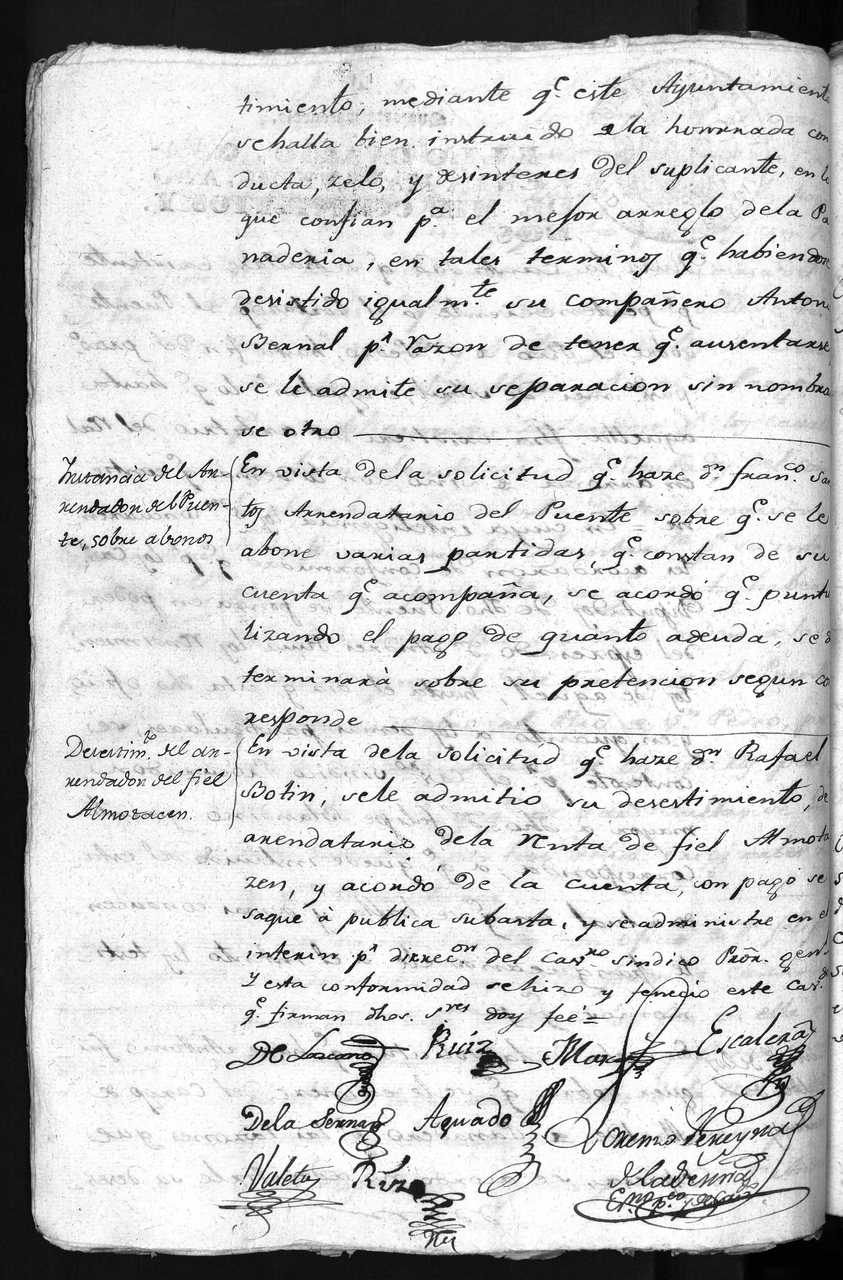 timiento, mediante q.e este Ayuntamiento
se halla bien instruido a la honrrada con
ducta, zelo, y desinteres del suplicante, en lo
que confian p.a el mejor arreglo dela Pa
naderia, en tales terminos q.e habiendose
desistido igualm.te su compañero Antoni
Bernal p.r razon de tener q.e ausentarse,
se le admite su separacion sin nombra
se otro
Instancia del Ar-
rendador del Puen-
te, sobre abonos
En vista dela solicitud q.e haze d.n Fran.co San
tos Arrendatario del Puente sobre q.e se le
abone varias partidas, q.e constan de su
cuenta q.e acompaña, se acordó q.e puntu
lizando el pago de quanto adeuda, se d
terminarà sobre su pretencion segun co
rresponde
Desestim.to del ar-
rendador del fiel
Almotacen.
En vista dela solicitud q.e haze d.n Rafael
Botin, sele admitio su desestimiento, de
arendatario dela renta de fiel Almota
zen, y acordó de la cuenta, con pago se
saque à publica subasta, y se administre en el
interin p.r direcc.on del Cav.ro sindico Pror. gen.l
Y esta conformidad se hizo y fenecio este Cav.do
q.e firman dhos. s.res doy feé=
De Lozcano Ruiz Escalera
Dela Serna Aguado
Valeta Ruiz